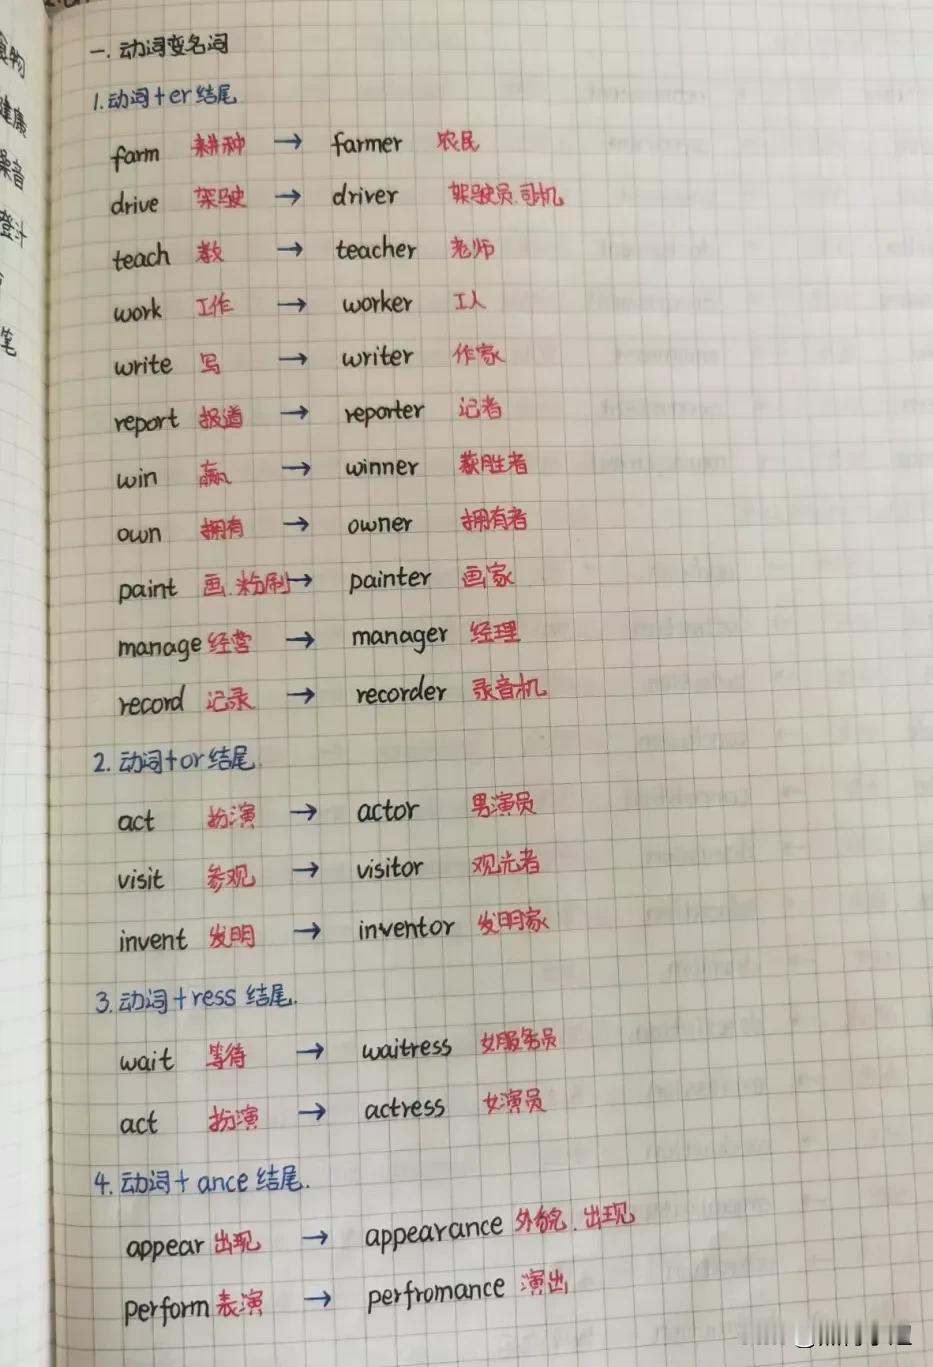 食物
健康
噪音
登
笔
一.动词变名词
1.动词+er结尾
farm 耕种 → farmer 农民
drive 驾驶 → driver 驾驶员.司机
teach 教 → teacher 老师
work 工作 → worker 工人
write 写 → writer 作家
report 报道 → reporter 记者
win 赢 → winner 获胜者
own 拥有 → owner 拥有者
paint 画.粉刷→ painter 画家
manage 经营 → manager 经理
record 记录 → recorder 录音机
2.动词+or结尾.
act 扮演 → actor 男演员
visit 参观 → visitor 观光者
invent 发明 → inventor 发明家
3.动词+ress结尾.
wait 等待 → waitress 女服务员
act 扮演 → actress 女演员
4.动词+ance结尾.
appear 出现 → appearance 外貌.出现
perform 表演 → perfromance 演出